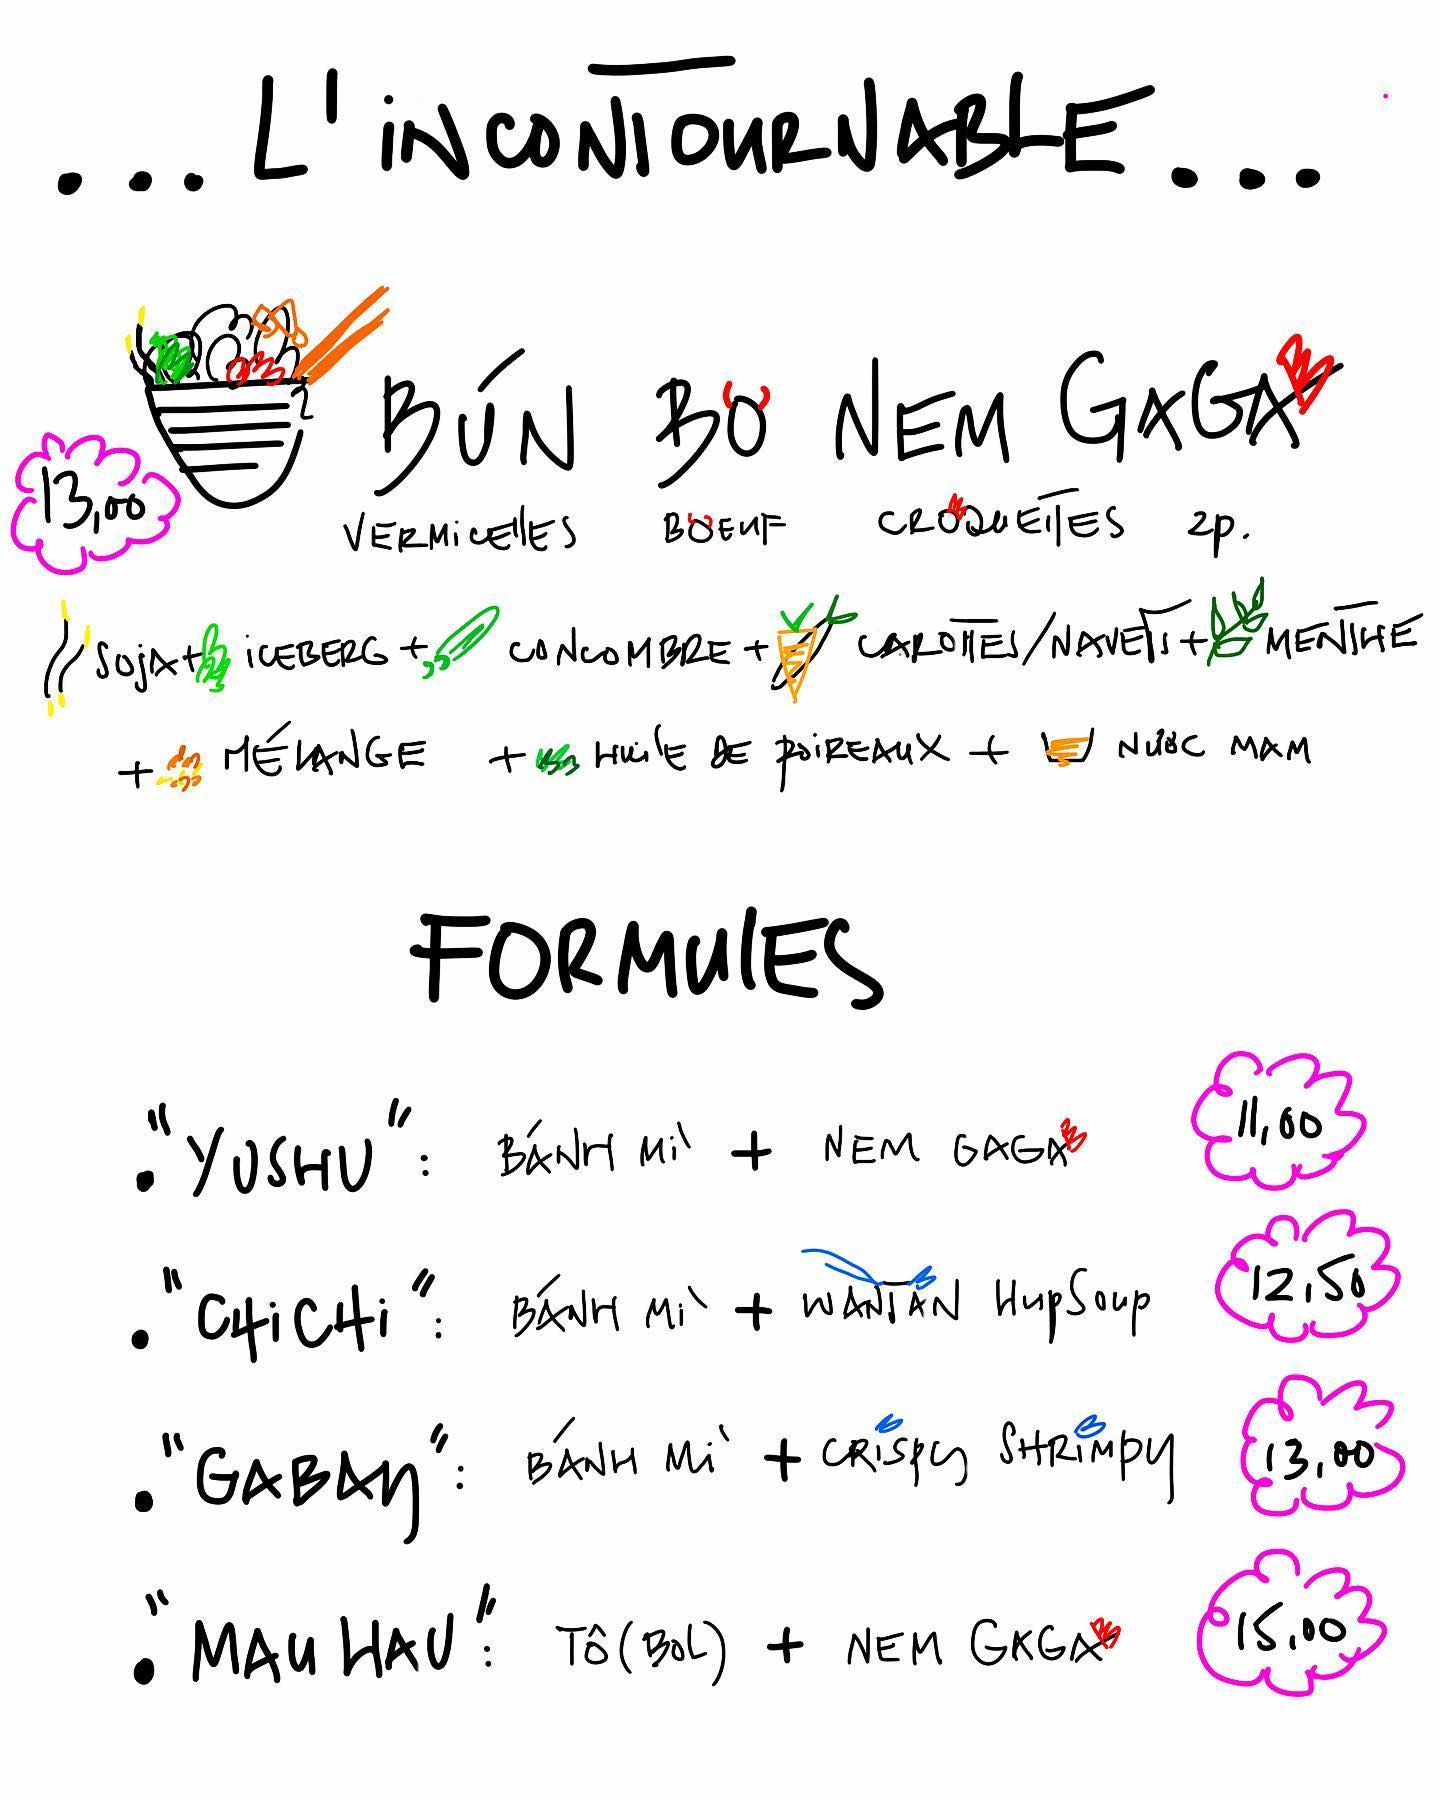 ... L'INCONTOURNABLE ...
BÚN BÒ NEM GAGA
13,00
VERMICELLES BOEUF CROQUETTES 2p.
SOJA + ICEBERG + CONCOMBRE + CAROTTES/NAVETS + MENTHE
+ MÉLANGE + HUILE DE POIREAUX + NUOC MAM
FORMULES
• "YUSHU" : BÁNH Mì + NEM GAGA 11,00
• "CHiCHi" : BÁNH Mì + WANTAN HupSoup 12,50
• "GABAY" : BÁNH Mì + CRISPY SHRIMPY 13,00
• "MAU HAU" : TÔ (BOL) + NEM GAGA 15,00